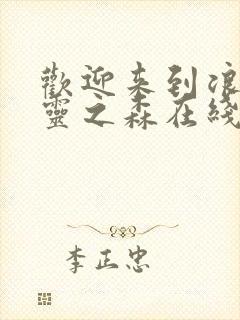 歡迎来到浪
靈之森在綫
李正忠